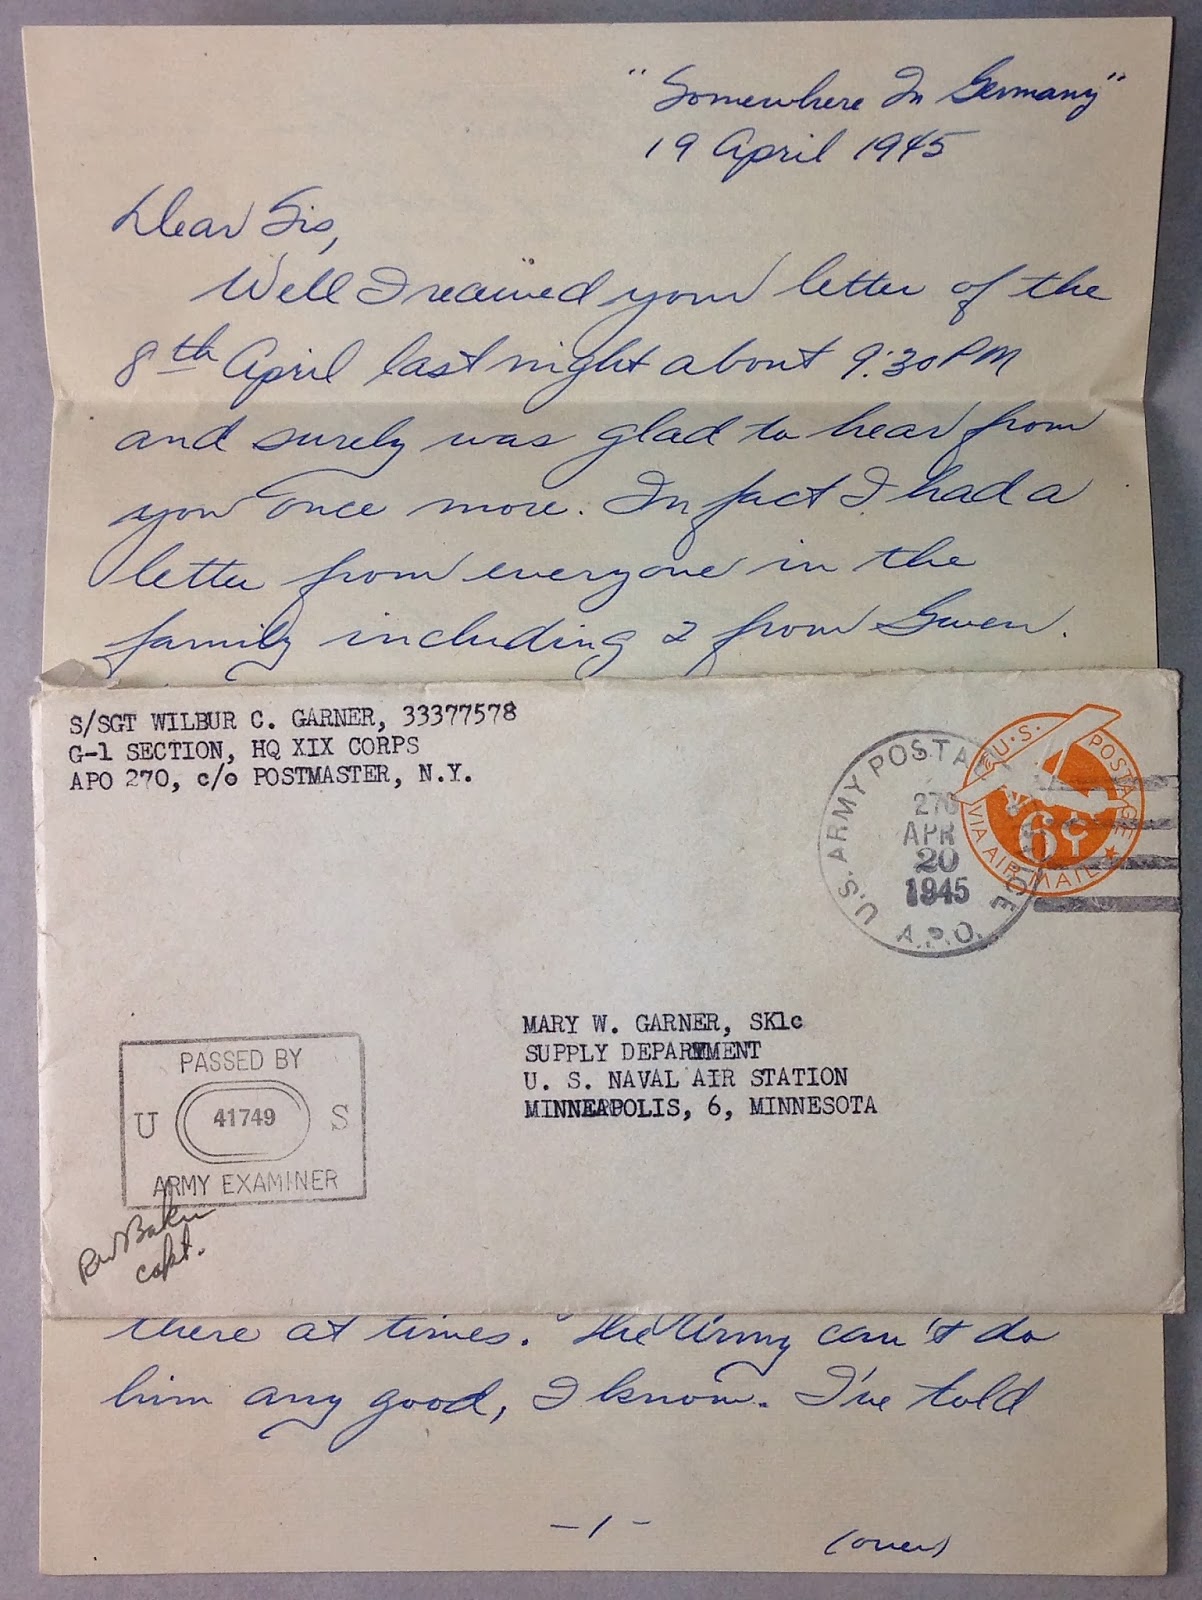 "Somewhere In Germany"
19 April 1945
Dear Sis,
Well I received your letter of the
8th April last night about 9:30 PM
and surely was glad to hear from
you once more. In fact I had a
letter from everyone in the
family including 2 from Gwen.
S/SGT WILBUR C. GARNER, 33377578
G-1 SECTION, HQ XIX CORPS
APO 270, c/o POSTMASTER, N.Y.
U.S. ARMY POSTAL SERVICE
270
APR
20
1945
A.P.O.
U.S. POSTAGE
6¢
VIA AIR MAIL
MARY W. GARNER, SK1c
SUPPLY DEPARTMENT
U. S. NAVAL AIR STATION
MINNEAPOLIS, 6, MINNESOTA
PASSED BY
U 41749 S
ARMY EXAMINER
RW Baker
capt.
there at times. The Army can't do
him any good, I know. I've told
-1-
(over)